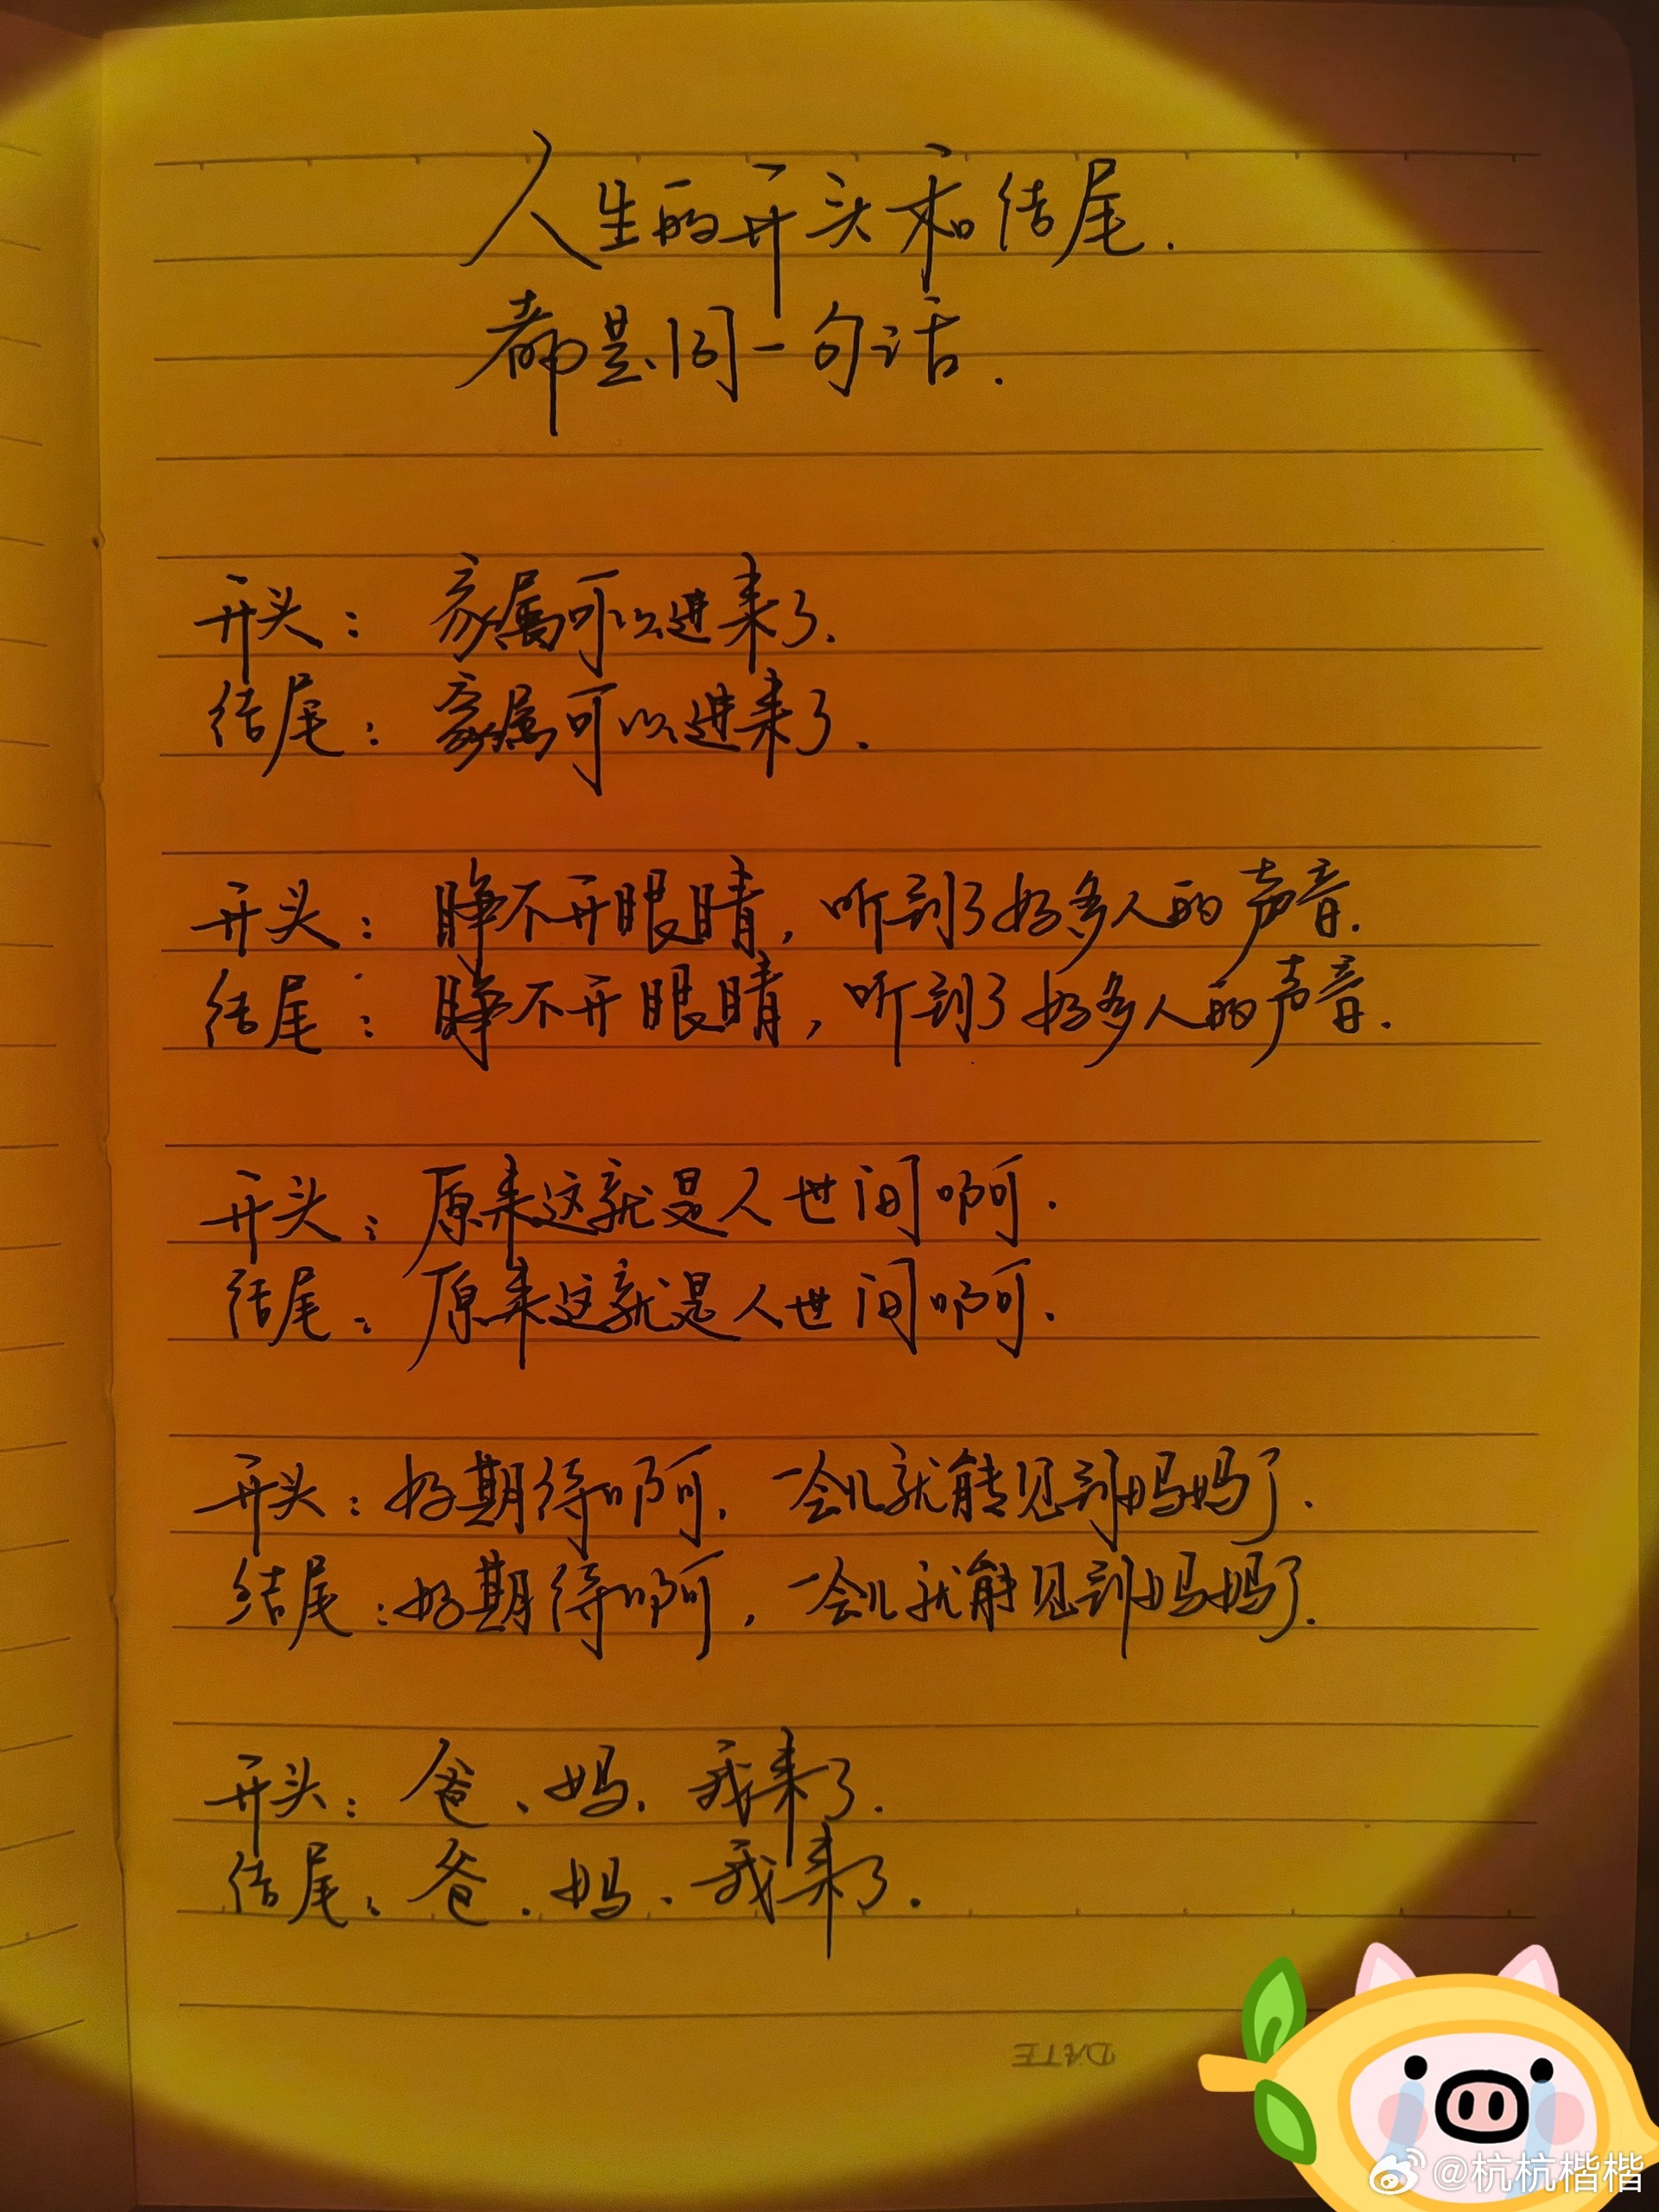 人生的开头和结尾.
都是同一句话.
开头：家属可以进来了.
结尾：家属可以进来了.
开头：睁不开眼睛，听到了好多人的声音.
结尾：睁不开眼睛，听到了好多人的声音.
开头：原来这就是人世间啊.
结尾：原来这就是人世间啊.
开头：好期待啊，一会儿就能见到妈妈了.
结尾：好期待啊，一会儿就能见到妈妈了.
开头：爸、妈、我来了.
结尾：爸、妈、我来了.
DATE
@杭杭楷楷